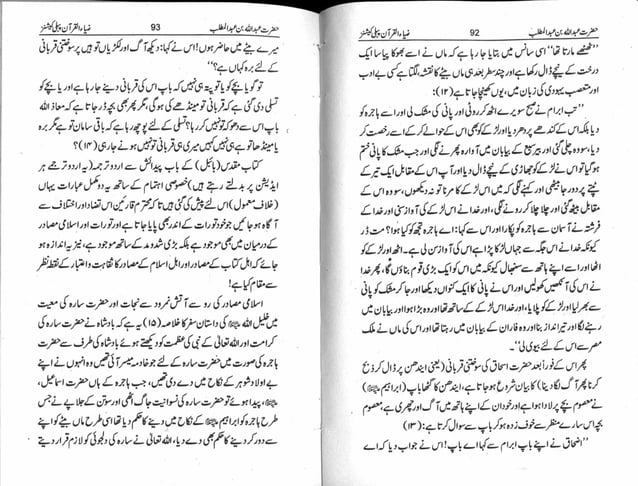 حضرت عبداللہ بن عبدالمطلب 92 ضیاء القرآن پبلی کیشنز
ٹھٹھے مارتا تھا‘‘ اسی سانس میں بتایا جا رہا ہے کہ ماں نے اسے بھوکا پیاسا ایک
درخت کے نیچے ڈال رکھا ہے اور چند سطر بعد ہی ماں بیٹے کا نقشہ، لگتا ہے کسی بے ادب
اور متعصب یہودی کی زبان میں، یوں کھینچا جاتا ہے (۱۲):
’’تب ابرام نے صبح سویرے اٹھ کر روٹی اور پانی کی مشک لی اور اسے ہاجرہ کو
دیا بلکہ اس کے کندھے پر دھر دیا اور لڑکے کو بھی اس کے حوالے کر کے اسے رخصت کر
دیا، سو وہ چلی گئی اور بیر سبع کے بیابان میں آوارہ پھرنے لگی اور جب مشک کا پانی ختم
ہو گیا تو اس نے لڑکے کو جھاڑی کے نیچے ڈال دیا اور آپ اس کے مقابل ایک تیر کے
ٹپے پر دور جا بیٹھی اور کہنے لگی کہ میں اس لڑکے کا مرنا تو نہ دیکھوں، سو وہ اس کے
مقابل بیٹھ گئی اور چلا چلا کر رونے لگی، اور خدا نے اس لڑکے کی آواز سنی اور خدا کے
فرشتہ نے آسمان سے ہاجرہ کو پکارا اور اس سے کہا: اے ہاجرہ تجھ کو کیا ہوا؟ مت ڈر
کیونکہ خدا نے اس جگہ سے جہاں لڑکا پڑا ہے اس کی آواز سن لی ہے۔ اٹھ اور لڑکے کو
اٹھا اور اسے اپنے ہاتھ سے سنبھال کیونکہ میں اس کو ایک بڑی قوم بناؤں گا، پھر خدا
نے اس کی آنکھیں کھولیں اور اس نے پانی کا ایک کنواں دیکھا اور جا کر مشک کو پانی
سے بھر لیا اور لڑکے کو پلایا، اور خدا اس لڑکے کے ساتھ تھا اور وہ بڑا ہوا اور بیابان میں
رہنے لگا اور تیر انداز بنا اور وہ فاران کے بیابان میں رہتا تھا اور اس کی ماں نے ملک
مصر سے اس کے لئے بیوی لی‘‘۔
پھر اس کے فوراً بعد حضرت اسحاق کی سوختنی قربانی (یعنی ایندھن پر ڈال کر ذبح
کرنا پھر آگ لگا دینا) کا بیان شروع ہو جاتا ہے، ایندھن کا گٹھا باپ (ابراہیم ﷺ)
معصوم بچے پر لادا ہوا ہے اور خود ان کے اپنے ہاتھ میں آگ اور چھری ہے، معصوم
بچہ اس سارے منظر سے خوف زدہ ہو کر باپ سے سوال کرتا ہے: (۱۳)
’’اضحاق نے اپنے باپ ابرام سے کہا اے باپ! اس نے جواب دیا کہ اے
حضرت عبداللہ بن عبدالمطلب 93 ضیاء القرآن پبلی کیشنز
میرے بیٹے میں حاضر ہوں! اس نے کہا: دیکھ آگ اور لکڑیاں تو ہیں پر سوختنی قربانی
کے لئے برہ کہاں ہے؟‘‘
تو گویا بچے کو یا تو پتہ ہی نہیں کہ باپ اس کی قربانی دینے جا رہا ہے اور یا بچے کو
تسلی دی گئی ہے کہ قربانی تو مینڈھے کی ہو گی، مگر پھر بھی بچہ ڈر جاتا ہے کہ معاذ اللہ
باپ اس سے دھوکہ تو نہیں کر رہا؟ تسلی کے لئے پوچھ رہا ہے کہ باقی سامان تو ہے مگر برہ
یا مینڈھا تو ہے ہی نہیں کہیں میری ہی قربانی تو نہیں ہونے جا رہی (۱۴)؟
کتاب مقدس (بائبل) کے باب پیدائش سے اردو ترجمہ (یہ اردو ترجمے ہر
ایڈیشن پر بدلتے رہتے ہیں) خصوصی اہتمام کے ساتھ یہ دو مکمل عبارات یہاں
(خلاف معمول) اس لئے پیش کی گئی ہیں تاکہ محترم قارئین اس تضاد اور اختلاف سے
آگاہ ہو جائیں جو خود تورات کے اندر بھی پایا جاتا ہے اور تورات اور اسلامی مصادر
کے درمیان میں بھی موجود ہے بلکہ بڑی شد و مد کے ساتھ موجود ہے، نیز یہ اندازہ ہو
جائے کہ اہل کتاب کے مصادر اور اہل اسلام کے مصادر کا ثقاہت و اعتبار کے نقطہ نظر
سے مقام کیا ہے!
اسلامی مصادر کی رو سے آتش نمرود سے نجات اور حضرت سارہ کی معیت
میں خلیل اللہ ﷺ کی داستان سفر کا خلاصہ (۱۵) یہ ہے کہ بادشاہ نے حضرت سارہ کی
کرامت اور اللہ تعالیٰ کے نبی کی عظمت کو دیکھتے ہوئے بادشاہ کی طرف سے حضرت
ہاجرہ کی صورت میں حضرت سارہ کے لئے جو خادمہ میسر آئی تھیں وہ انہوں نے اپنے
بے اولاد شوہر کے نکاح میں دے دی تھیں، جب ہاجرہ کے ہاں حضرت اسماعیل،
ﷺ، پیدا ہوئے تو حضرت سارہ کی نسوانیت جاگ اٹھی اور سوتن کے جلاپے نے جس
طرح ہاجرہ کو ابراہیم ﷺ کے نکاح میں دینے کا حکم دیا تھا اسی طرح ماں بیٹے کو اپنے
سے دور کر دینے کا حکم بھی دے دیا، اللہ تعالیٰ نے سارہ کی دلجوئی کو لازم قرار دیتے